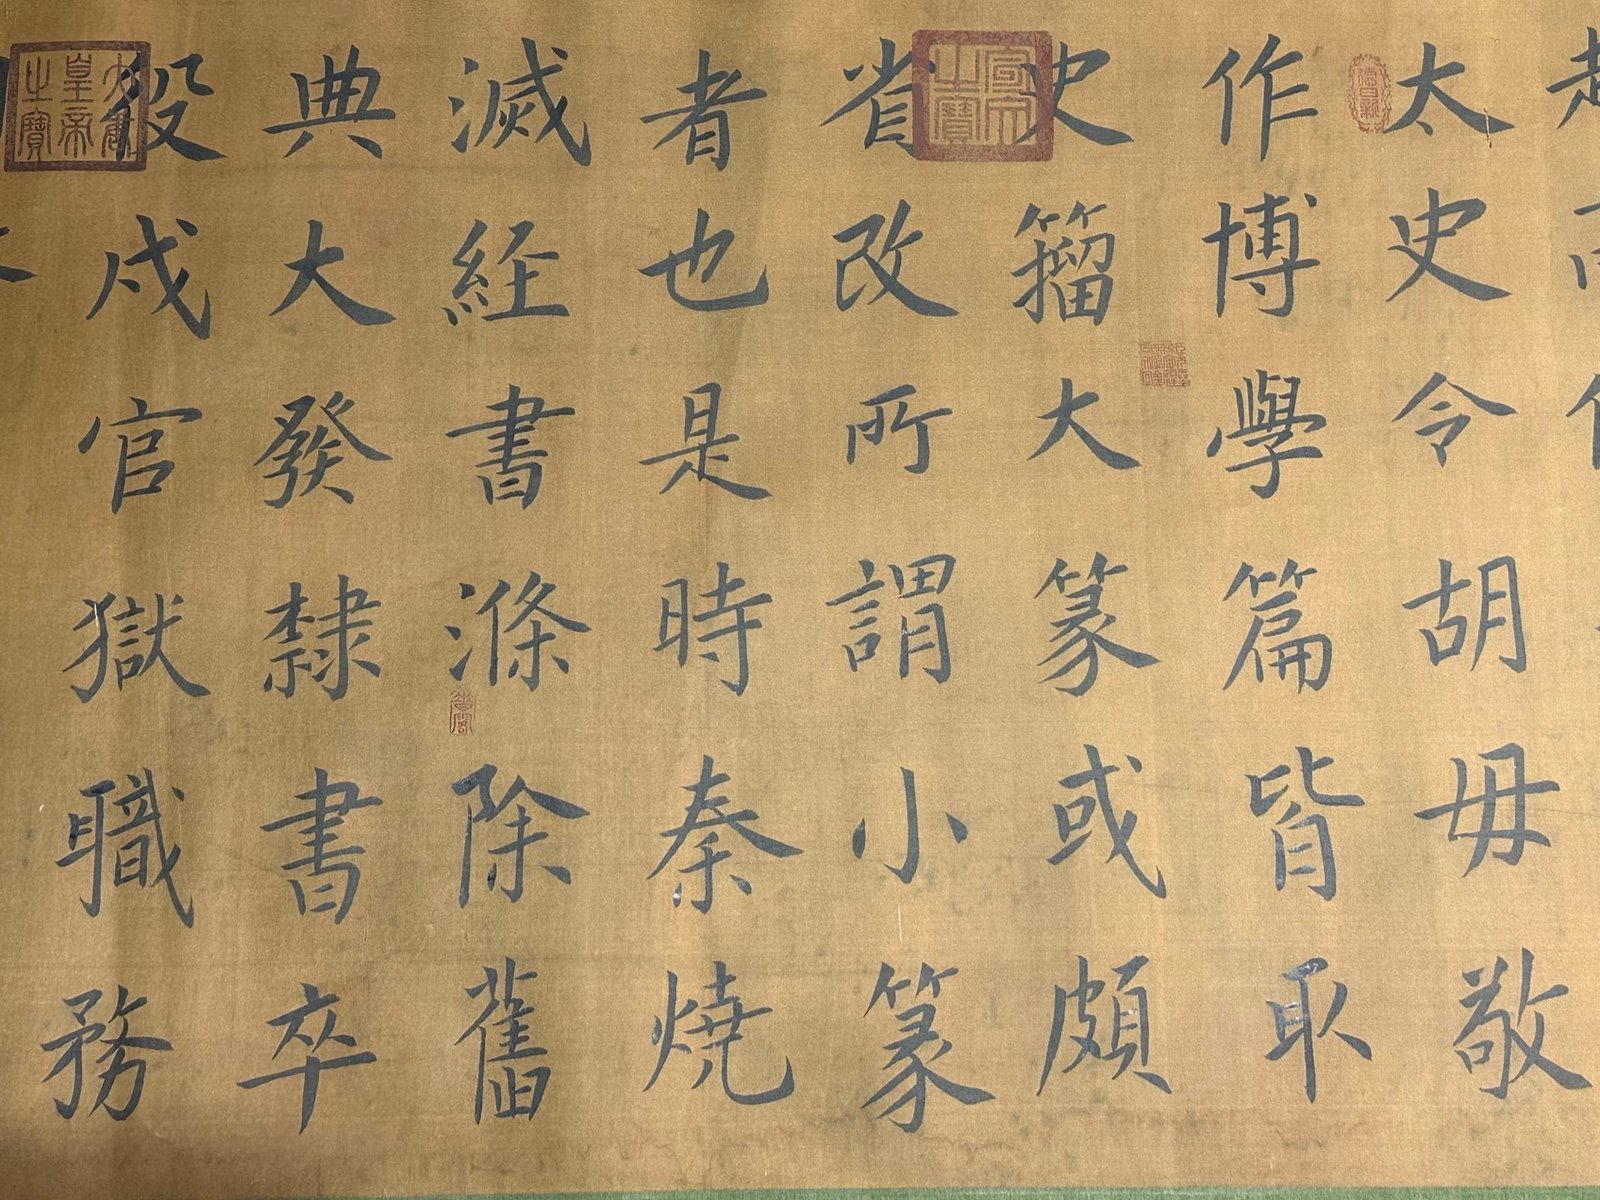 太史令胡毋敬
作博學篇皆取
史籀大篆或頗
省改所謂小篆
者也是時秦燒
滅経書滌除舊
典大發隸書卒
役戍官獄職務
德日新